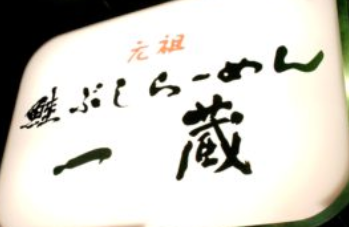 元祖
鮭ぶしらーめん
一蔵